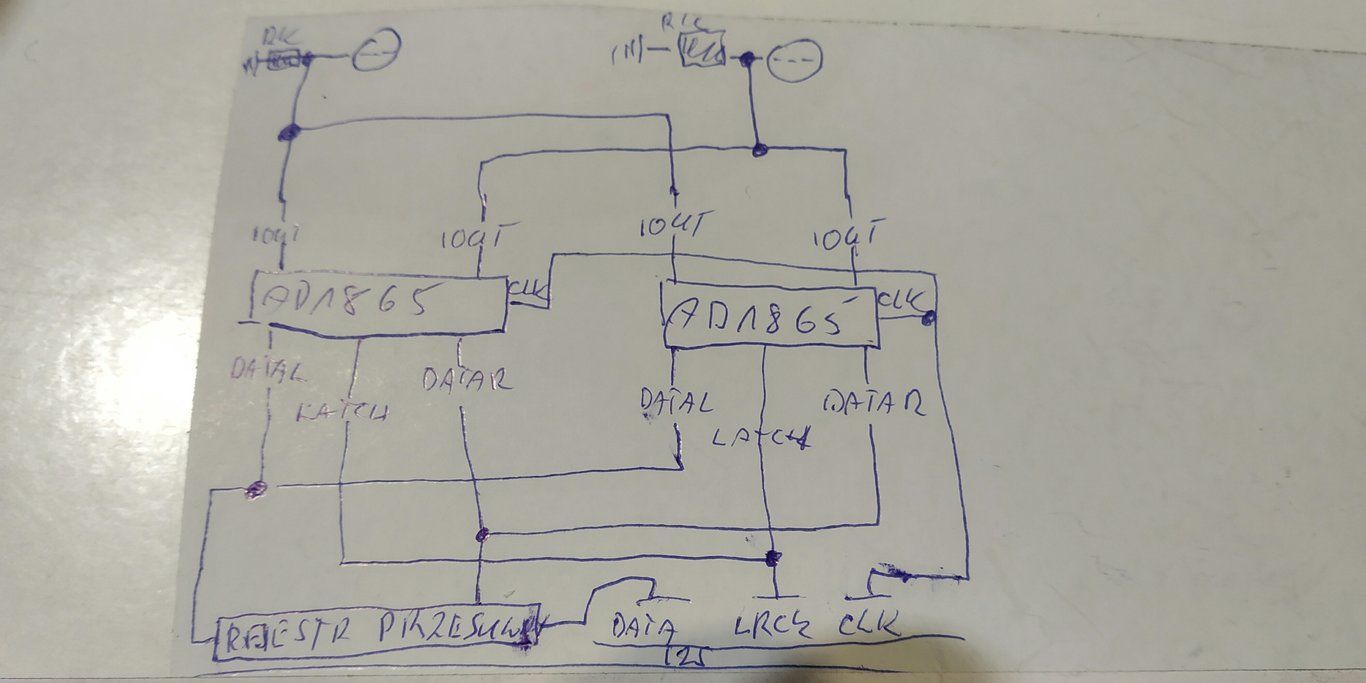 RK
IOUT IOUT IOUT IOUT
AD1865 CLK AD1865 CLK
DATAL DATAR DATAL DATAR
LATCH LATCH
REJESTR PRZESUW DATA LRCK CLK
I2S